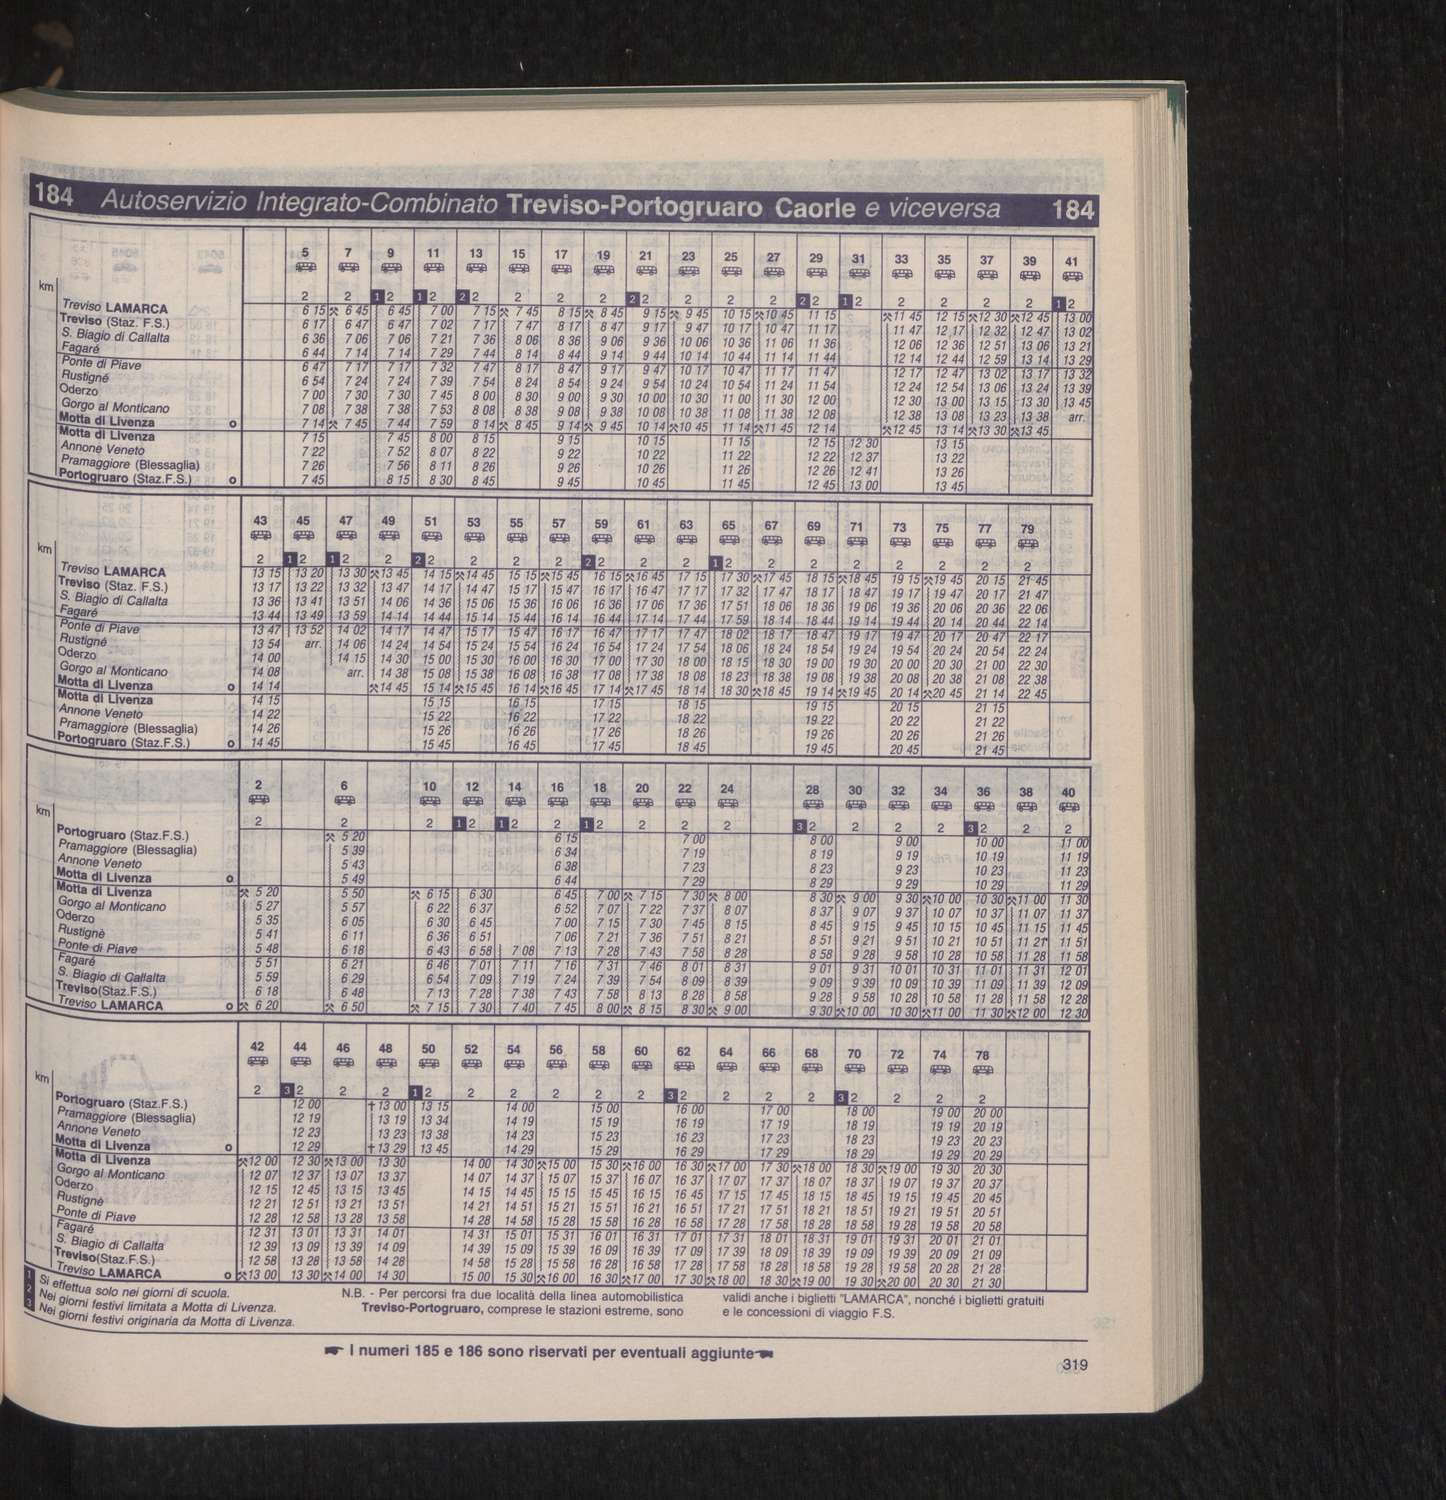 184 Autoservizio Integrato-Combinato Treviso-Portogruaro Caorle e viceversa 184
5 7 9 11 13 15 17 19 21 23 25 27 29 31 33 35 37 39 41
km 2 2 1 2 1 2 2 2 2 2 2 2 2 2 2 2 2 2 1 2 2 2 2 2 1 2
Treviso LAMARCA 6 15 ⚒ 6 45 6 45 7 00 7 15 ⚒ 7 45 8 15 ⚒ 8 45 9 15 ⚒ 9 45 10 15 ⚒10 45 11 15 ⚒11 45 12 15 ⚒12 30 ⚒12 45 13 00
Treviso (Staz. F.S.) 6 17 6 47 6 47 7 02 7 17 7 47 8 17 8 47 9 17 9 47 10 17 10 47 11 17 11 47 12 17 12 32 12 47 13 02
S. Biagio di Callalta 6 36 7 06 7 06 7 21 7 36 8 06 8 36 9 06 9 36 10 06 10 36 11 06 11 36 12 06 12 36 12 51 13 06 13 21
Fagaré 6 44 7 14 7 14 7 29 7 44 8 14 8 44 9 14 9 44 10 14 10 44 11 14 11 44 12 14 12 44 12 59 13 14 13 29
Ponte di Piave 6 47 7 17 7 17 7 32 7 47 8 17 8 47 9 17 9 47 10 17 10 47 11 17 11 47 12 17 12 47 13 02 13 17 13 32
Rustigné 6 54 7 24 7 24 7 39 7 54 8 24 8 54 9 24 9 54 10 24 10 54 11 24 11 54 12 24 12 54 13 06 13 24 13 39
Oderzo 7 00 7 30 7 30 7 45 8 00 8 30 9 00 9 30 10 00 10 30 11 00 11 30 12 00 12 30 13 00 13 15 13 30 13 45
Gorgo al Monticano 7 08 7 38 7 38 7 53 8 08 8 38 9 08 9 38 10 08 10 38 11 08 11 38 12 08 12 38 13 08 13 23 13 38 arr.
Motta di Livenza o 7 14 ⚒ 7 45 7 44 7 59 8 14 ⚒ 8 45 9 14 ⚒ 9 45 10 14 ⚒10 45 11 14 ⚒11 45 12 14 ⚒12 45 13 14 ⚒13 30 ⚒13 45
Motta di Livenza 7 15 7 45 8 00 8 15 9 15 10 15 11 15 12 15 12 30 13 15
Annone Veneto 7 22 7 52 8 07 8 22 9 22 10 22 11 22 12 22 12 37 13 22
Pramaggiore (Blessaglia) 7 26 7 56 8 11 8 26 9 26 10 26 11 26 12 26 12 41 13 26
Portogruaro (Staz.F.S.) o 7 45 8 15 8 30 8 45 9 45 10 45 11 45 12 45 13 00 13 45
43 45 47 49 51 53 55 57 59 61 63 65 67 69 71 73 75 77 79
km 2 1 2 1 2 2 2 2 2 2 2 2 2 2 2 1 2 2 2 2 2 2 2 2
Treviso LAMARCA 13 15 13 20 13 30 ⚒13 45 14 15 ⚒14 45 15 15 ⚒15 45 16 15 ⚒16 45 17 15 17 30 ⚒17 45 18 15 ⚒18 45 19 15 ⚒19 45 20 15 21 45
Treviso (Staz. F.S.) 13 17 13 22 13 32 13 47 14 17 14 47 15 17 15 47 16 17 16 47 17 17 17 32 17 47 18 17 18 47 19 17 19 47 20 17 21 47
S. Biagio di Callalta 13 36 13 41 13 51 14 06 14 36 15 06 15 36 16 06 16 36 17 06 17 36 17 51 18 06 18 36 19 06 19 36 20 06 20 36 22 06
Fagaré 13 44 13 49 13 59 14 14 14 44 15 14 15 44 16 14 16 44 17 14 17 44 17 59 18 14 18 44 19 14 19 44 20 14 20 44 22 14
Ponte di Piave 13 47 13 52 14 02 14 17 14 47 15 17 15 47 16 17 16 47 17 17 17 47 18 02 18 17 18 47 19 17 19 47 20 17 20 47 22 17
Rustigné 13 54 arr. 14 06 14 24 14 54 15 24 15 54 16 24 16 54 17 24 17 54 18 06 18 24 18 54 19 24 19 54 20 24 20 54 22 24
Oderzo 14 00 14 15 14 30 15 00 15 30 16 00 16 30 17 00 17 30 18 00 18 15 18 30 19 00 19 30 20 00 20 30 21 00 22 30
Gorgo al Monticano 14 08 arr. 14 38 15 08 15 38 16 08 16 38 17 08 17 38 18 08 18 23 18 38 19 08 19 38 20 08 20 38 21 08 22 38
Motta di Livenza o 14 14 ⚒14 45 15 14 ⚒15 45 16 14 ⚒16 45 17 14 ⚒17 45 18 14 18 30 ⚒18 45 19 14 ⚒19 45 20 14 ⚒20 45 21 14 22 45
Motta di Livenza 14 15 15 15 16 15 17 15 18 15 19 15 20 15 21 15
Annone Veneto 14 22 15 22 16 22 17 22 18 22 19 22 20 22 21 22
Pramaggiore (Blessaglia) 14 26 15 26 16 26 17 26 18 26 19 26 20 26 21 26
Portogruaro (Staz.F.S.) o 14 45 15 45 16 45 17 45 18 45 19 45 20 45 21 45
2 6 10 12 14 16 18 20 22 24 28 30 32 34 36 38 40
km 2 2 2 1 2 1 2 2 1 2 2 2 2 3 2 2 2 2 3 2 2 2
Portogruaro (Staz.F.S.) ⚒ 5 20 6 15 7 00 8 00 9 00 10 00 11 00
Pramaggiore (Blessaglia) 5 39 6 34 7 19 8 19 9 19 10 19 11 19
Annone Veneto 5 43 6 38 7 23 8 23 9 23 10 23 11 23
Motta di Livenza o 5 49 6 44 7 29 8 29 9 29 10 29 11 29
Motta di Livenza ⚒ 5 20 5 50 ⚒ 6 15 6 30 6 45 7 00 ⚒ 7 15 7 30 ⚒ 8 00 8 30 ⚒ 9 00 9 30 ⚒10 00 10 30 ⚒11 00 11 30
Gorgo al Monticano 5 27 5 57 6 22 6 37 6 52 7 07 7 22 7 37 8 07 8 37 9 07 9 37 10 07 10 37 11 07 11 37
Oderzo 5 35 6 05 6 30 6 45 7 00 7 15 7 30 7 45 8 15 8 45 9 15 9 45 10 15 10 45 11 15 11 45
Rustignè 5 41 6 11 6 36 6 51 7 06 7 21 7 36 7 51 8 21 8 51 9 21 9 51 10 21 10 51 11 21 11 51
Ponte di Piave 5 48 6 18 6 43 6 58 7 08 7 13 7 28 7 43 7 58 8 28 8 58 9 28 9 58 10 28 10 58 11 28 11 58
Fagaré 5 51 6 21 6 46 7 01 7 11 7 16 7 31 7 46 8 01 8 31 9 01 9 31 10 01 10 31 11 01 11 31 12 01
S. Biagio di Callalta 5 59 6 29 6 54 7 09 7 19 7 24 7 39 7 54 8 09 8 39 9 09 9 39 10 09 10 39 11 09 11 39 12 09
Treviso(Staz.F.S.) 6 18 6 48 7 13 7 28 7 38 7 43 7 58 8 13 8 28 8 58 9 28 9 58 10 28 10 58 11 28 11 58 12 28
Treviso LAMARCA o ⚒ 6 20 ⚒ 6 50 ⚒ 7 15 7 30 7 40 7 45 8 00 ⚒ 8 15 8 30 ⚒ 9 00 9 30 ⚒10 00 10 30 ⚒11 00 11 30 ⚒12 00 12 30
42 44 46 48 50 52 54 56 58 60 62 64 66 68 70 72 74 78
km 2 3 2 2 2 1 2 2 2 2 2 2 3 2 2 2 2 3 2 2 2 2
Portogruaro (Staz.F.S.) 12 00 †13 00 13 15 14 00 15 00 16 00 17 00 18 00 19 00 20 00
Pramaggiore (Blessaglia) 12 19 13 19 13 34 14 19 15 19 16 19 17 19 18 19 19 19 20 19
Annone Veneto 12 23 13 23 13 38 14 23 15 23 16 23 17 23 18 23 19 23 20 23
Motta di Livenza o 12 29 †13 29 13 45 14 29 15 29 16 29 17 29 18 29 19 29 20 29
Motta di Livenza ⚒12 00 12 30 ⚒13 00 13 30 14 00 14 30 ⚒15 00 15 30 ⚒16 00 16 30 ⚒17 00 17 30 ⚒18 00 18 30 ⚒19 00 19 30 20 30
Gorgo al Monticano 12 07 12 37 13 07 13 37 14 07 14 37 15 07 15 37 16 07 16 37 17 07 17 37 18 07 18 37 19 07 19 37 20 37
Oderzo 12 15 12 45 13 15 13 45 14 15 14 45 15 15 15 45 16 15 16 45 17 15 17 45 18 15 18 45 19 15 19 45 20 45
Rustignè 12 21 12 51 13 21 13 51 14 21 14 51 15 21 15 51 16 21 16 51 17 21 17 51 18 21 18 51 19 21 19 51 20 51
Ponte di Piave 12 28 12 58 13 28 13 58 14 28 14 58 15 28 15 58 16 28 16 58 17 28 17 58 18 28 18 58 19 28 19 58 20 58
Fagaré 12 31 13 01 13 31 14 01 14 31 15 01 15 31 16 01 16 31 17 01 17 31 18 01 18 31 19 01 19 31 20 01 21 01
S. Biagio di Callalta 12 39 13 09 13 39 14 09 14 39 15 09 15 39 16 09 16 39 17 09 17 39 18 09 18 39 19 09 19 39 20 09 21 09
Treviso(Staz.F.S.) 12 58 13 28 13 58 14 28 14 58 15 28 15 58 16 28 16 58 17 28 17 58 18 28 18 58 19 28 19 58 20 28 21 28
Treviso LAMARCA o ⚒13 00 13 30 ⚒14 00 14 30 15 00 15 30 ⚒16 00 16 30 ⚒17 00 17 30 ⚒18 00 18 30 ⚒19 00 19 30 ⚒20 00 20 30 21 30
1 Si effettua solo nei giorni di scuola.
2 Nei giorni festivi limitata a Motta di Livenza.
3 Nei giorni festivi originaria da Motta di Livenza.
N.B. - Per percorsi fra due località della linea automobilistica
Treviso-Portogruaro, comprese le stazioni estreme, sono
validi anche i biglietti "LAMARCA", nonché i biglietti gratuiti
e le concessioni di viaggio F.S.
☛ I numeri 185 e 186 sono riservati per eventuali aggiunte ☚
319